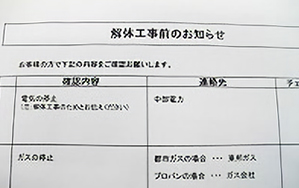 解体工事前のお知らせ
お客様の方で下記の内容をご確認お願いします。
確認内容
連絡先
チェ
電気の停止
中部電力
(注:解体工事のためとお伝えください)
ガスの停止
都市ガスの場合 ・・・ 東邦ガス
プロパンの場合 ・・・ ガス会社